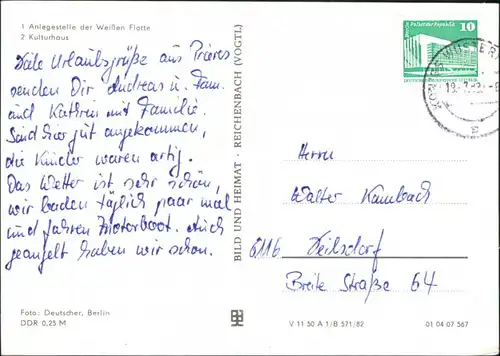 1 Anlegestelle der Weißen Flotte
2 Kulturhaus
Viele Urlaubsgrüße aus Prieros
senden Dir Andreas u. Fam.
und Kathrin mit Familie.
Sind hier gut angekommen,
die Kinder waren artig.
Das Wetter ist sehr schön,
wir baden täglich paar mal
und fahren Motorboot. Auch
geangelt haben wir schon.
Foto: Deutscher, Berlin
DDR 0,25 M
BILD UND HEIMAT · REICHENBACH (VOGTL)
V 11 50 A 1/B 571/82
01 04 07 567
Berlin, Palast der Republik
10
Herrn
Walter
6116 Veilsdorf
Breite Straße 64